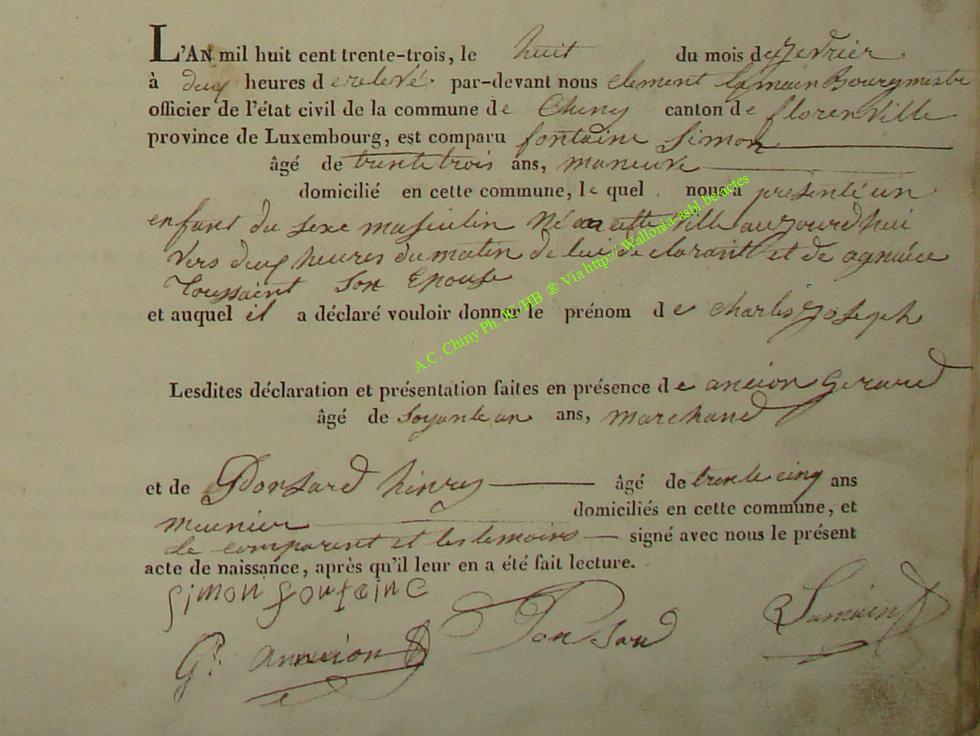 L'AN mil huit cent trente-trois, le huit du mois de fevrier
à deux heures de relevé par-devant nous clement Lamain Bourgmestre
officier de l'état civil de la commune de Chiny canton de florenville
province de Luxembourg, est comparu fontaine Simon
âgé de trente trois ans, maneuvre
domicilié en cette commune, le quel nous a présenté un
enfant du sexe masculin né en cette ville aujourdhui
vers deux heures du matin de lui déclarant et de agnaice
Toussaint son Epouse
et auquel il a déclaré vouloir donner le prénom de charles joseph
Lesdites déclaration et présentation faites en présence de ancion Gerard
âgé de soyante un ans, marchand
et de Ponsard hinry âgé de trente cinq ans
meunier domiciliés en cette commune, et
le comparent et les temoins signé avec nous le présent
acte de naissance, après qu'il leur en a été fait lecture.
Simon fontaine
G. anncion Ponsard Lamain
A.C. Chiny Ph. ® Via http://.Wallonia-asbl.be/actes